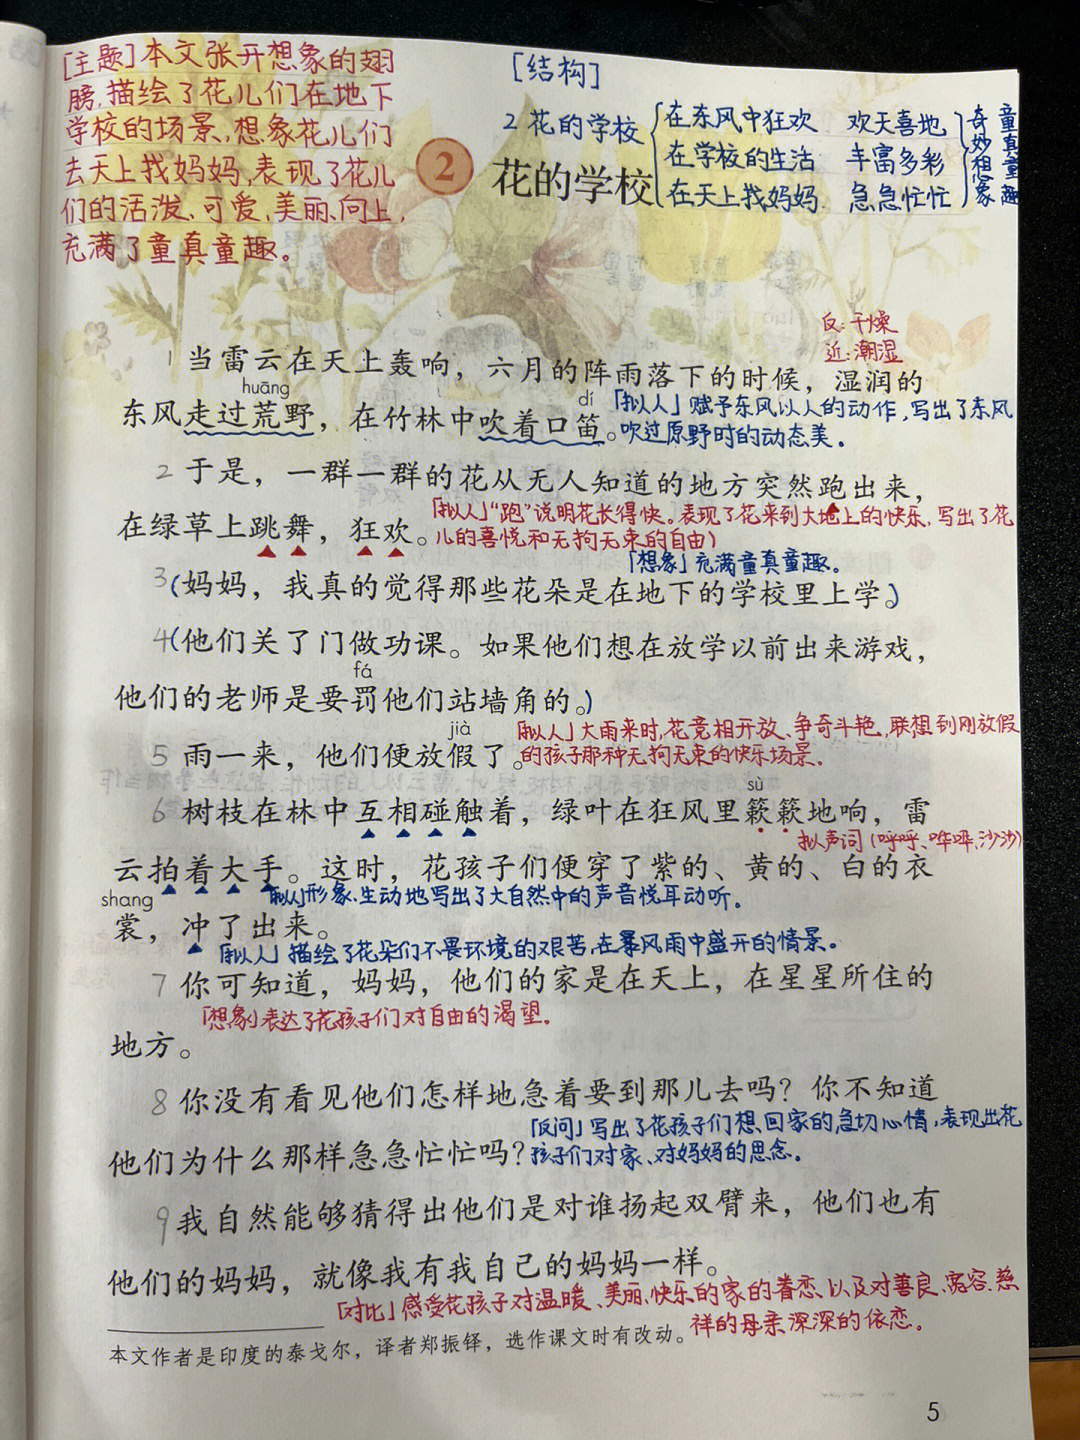 [主题]本文张开想象的翅
膀,描绘了花儿们在地下
学校的场景,想象花儿们
去天上找妈妈,表现了花儿
们的活泼、可爱、美丽、向上,
充满了童真童趣。
[结构]
2 花的学校
在东风中狂欢 欢天喜地
在学校的生活 丰富多彩
在天上找妈妈 急急忙忙
奇妙想象
童真童趣
2 花的学校
反:干燥
近:潮湿
1 当雷云在天上轰响，六月的阵雨落下的时候，湿润的
huāng dí
东风走过荒野，在竹林中吹着口笛。
「拟人」赋予东风以人的动作,写出了东风
吹过原野时的动态美。
2 于是，一群一群的花从无人知道的地方突然跑出来，
在绿草上跳舞，狂欢。
「拟人」“跑”说明花长得快。表现了花来到大地上的快乐,写出了花
儿的喜悦和无拘无束的自由)
「想象」充满童真童趣。
3(妈妈，我真的觉得那些花朵是在地下的学校里上学。)
4(他们关了门做功课。如果他们想在放学以前出来游戏，
fá
他们的老师是要罚他们站墙角的。)
jià
5 雨一来，他们便放假了。
「拟人」大雨来时,花竞相开放、争奇斗艳,联想到刚放假
的孩子那种无拘无束的快乐场景.
sù
6 树枝在林中互相碰触着，绿叶在狂风里簌簌地响，雷
拟声词(呼呼、哗哗、沙沙)
云拍着大手。这时，花孩子们便穿了紫的、黄的、白的衣
「拟人」形象、生动地写出了大自然中的声音悦耳动听。
shang
裳，冲了出来。
「拟人」描绘了花朵们不畏环境的艰苦,在暴风雨中盛开的情景。
7 你可知道，妈妈，他们的家是在天上，在星星所住的
「想象」表达了花孩子们对自由的渴望.
地方。
8 你没有看见他们怎样地急着要到那儿去吗？你不知道
他们为什么那样急急忙忙吗？
「反问」写出了花孩子们想回家的急切心情,表现出花
孩子们对家、对妈妈的思念。
9 我自然能够猜得出他们是对谁扬起双臂来，他们也有
他们的妈妈，就像我有我自己的妈妈一样。
「对比」感受花孩子对温暖、美丽、快乐的家的眷恋以及对善良、宽容、慈
祥的母亲深深的依恋。
本文作者是印度的泰戈尔，译者郑振铎，选作课文时有改动。
5